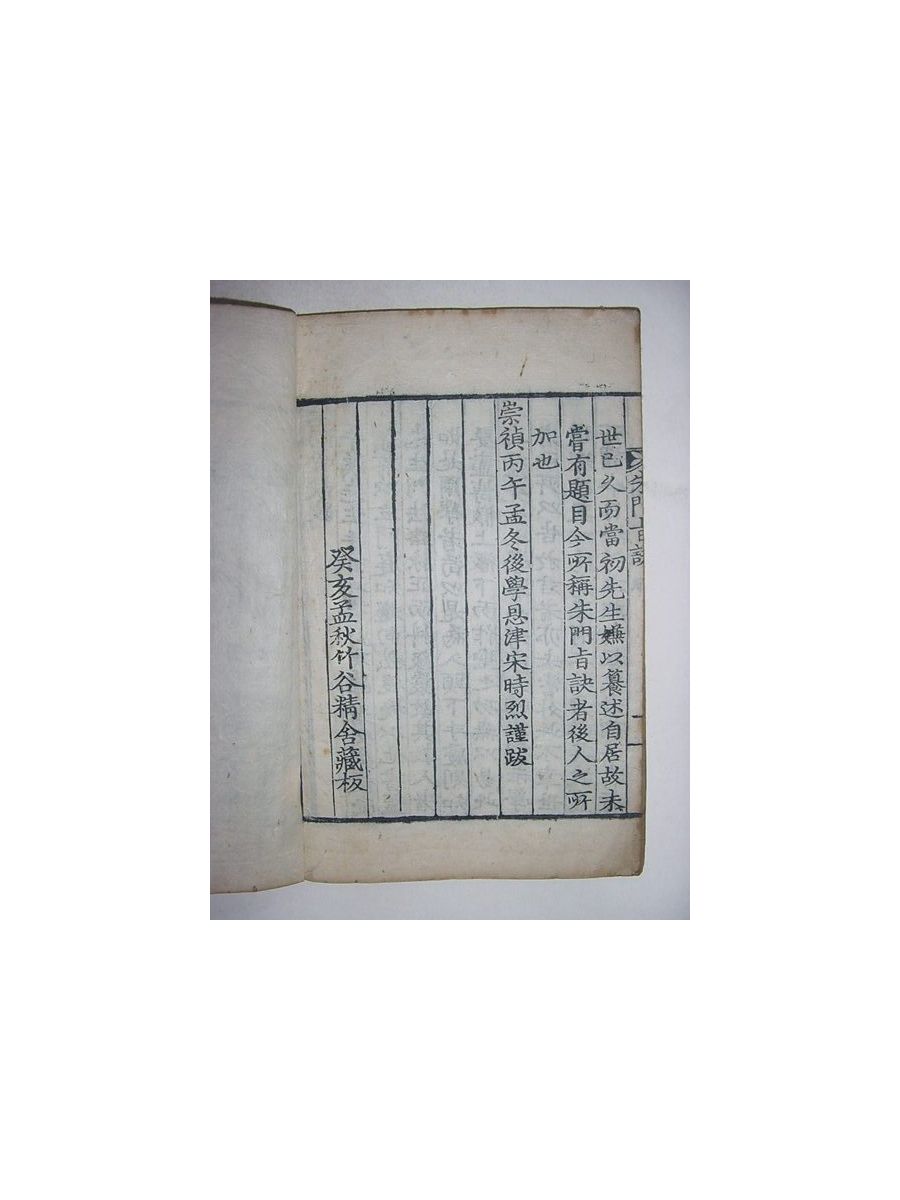 世已久而當初先生嫌以纂述自居故未
嘗有題目今所稱朱門旨訣者後人之所
加也
崇禎丙午孟冬後學恩津宋時烈謹跋
癸亥孟秋竹谷精舍藏板
朱門旨訣